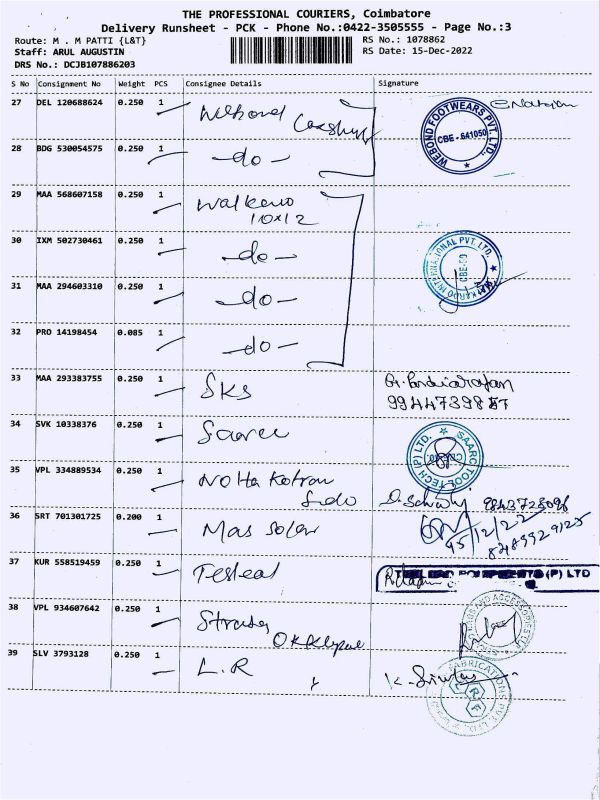 THE PROFESSIONAL COURIERS, Coimbatore
Delivery Runsheet - PCK - Phone No.:0422-3505555 - Page No.:3
Route: M . M PATTI {L&T}
RS No.: 1078862
Staff: ARUL AUGUSTIN
RS Date: 15-Dec-2022
DRS No.: DCJB107886203
S No Consignment No Weight PCS Consignee Details Signature
27 DEL 120688624 0.250 1 Webond
WEBOND FOOTWEARS PVT. LTD. CBE - 641050
28 BDG 530054575 0.250 1 -do-
29 MAA 568607158 0.250 1 Walkaroo
10x12
30 IXM 502730461 0.250 1 -do-
INTERNATIONAL PVT. LTD.
31 MAA 294603310 0.250 1 -do-
32 PRO 14198454 0.085 1 -do-
33 MAA 293383755 0.250 1 SKS
34 SVK 10338376 0.250 1
SAARC TOOL TECH (P) LTD.
35 VPL 334889534 0.250 1
36 SRT 701301725 0.200 1 Mas Solar
15/12/22
8489929125
37 KUR 558519459 0.250 1
(P) LTD
38 VPL 934607642 0.250 1
39 SLV 3793128 0.250 1 L.R
FABRICATIONS PVT. LTD.